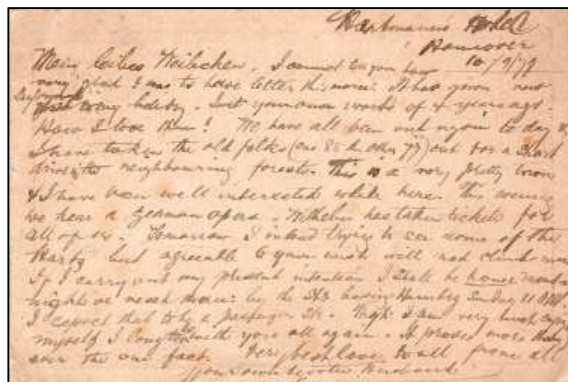 Hartmann's Hotel
Hannover
10/9/79
Mein liebes Weibchen. I cannot tell you how
very glad I was to have letter this morn: It has given new
to my holiday. Just your own words of 4 years ago
How I love them! We have all been out again to day &
I have taken the old folks (one 82 the other 77) out for a short
drive to neighbouring forests. This is a very pretty town
& I have been well interested while here. This evening
we hear a German opera. Wilhelm has taken tickets for
all of us. Tomorrow I intend trying to see some of the
Hartz but agreeable to your wish will not climb
If I carry out my present intention I shall be home
night or next morn: by the S/S leaving Hamburg Sunday 11
I expect that to be a passage Tho' I am very much enjoying
myself I long to be with you all again. It proves more than
ever the one fact. Very best love to all from all
Your own devoted Husband